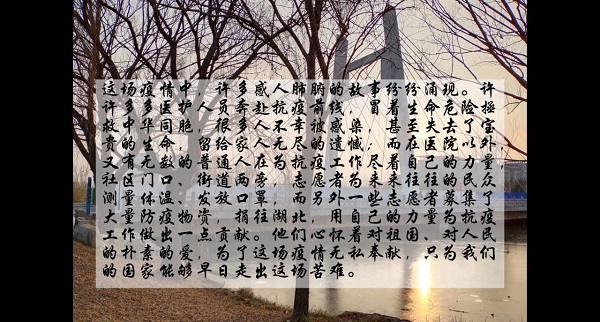 这场疫情中，许多感人肺腑的故事纷纷涌现。许
许多多医护人员奔赴抗疫前线，冒着生命危险拯
救中华同胞，很多人不幸被感染，甚至失去了宝
贵的生命，留给家人无尽的遗憾；而在医院以外，
又有无数的普通人在为抗疫工作尽着自己的力量，
社区门口、街道两旁，志愿者为来来往往的民众
测量体温、发放口罩，而另外一些志愿者募集了
大量防疫物资，捐往湖北，用自己的力量为抗疫
工作做出一点贡献。他们心怀着对祖国、对人民
的朴素的爱，为了这场疫情无私奉献，只为我们
的国家能够早日走出这场苦难。